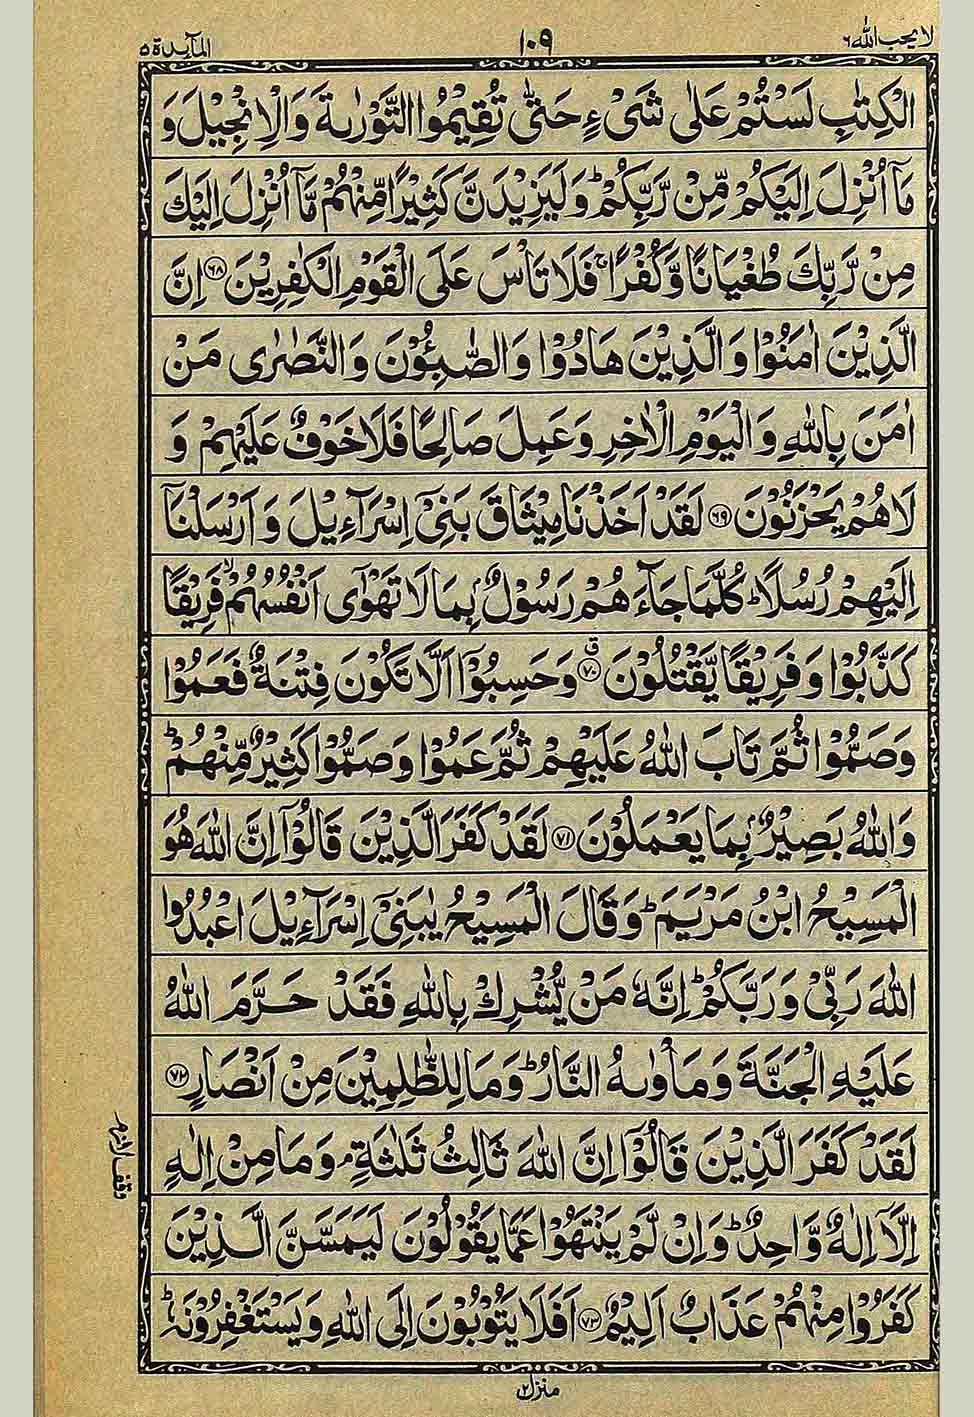 لا يحب الله ٦
١٠٩
المآىدة ٥
الْكِتٰبِ لَسْتُمْ عَلٰى شَىْءٍ حَتّٰى تُقِيْمُوا التَّوْرٰىةَ وَالْاِنْجِيْلَ وَ
مَآ اُنْزِلَ اِلَيْكُمْ مِّنْ رَّبِّكُمْ ؕ وَلَيَزِيْدَنَّ كَثِيْرًا مِّنْهُمْ مَّآ اُنْزِلَ اِلَيْكَ
مِنْ رَّبِّكَ طُغْيَانًا وَّكُفْرًا ۚ فَلَا تَاْسَ عَلَى الْقَوْمِ الْكٰفِرِيْنَ ﴿٦٨﴾ اِنَّ
الَّذِيْنَ اٰمَنُوْا وَالَّذِيْنَ هَادُوْا وَالصّٰبِـُٔوْنَ وَالنَّصٰرٰى مَنْ
اٰمَنَ بِاللّٰهِ وَالْيَوْمِ الْاٰخِرِ وَعَمِلَ صَالِحًا فَلَا خَوْفٌ عَلَيْهِمْ وَ
لَا هُمْ يَحْزَنُوْنَ ﴿٦٩﴾ لَقَدْ اَخَذْنَا مِيْثَاقَ بَنِىْٓ اِسْرَآءِيْلَ وَاَرْسَلْنَآ
اِلَيْهِمْ رُسُلًا ؕ كُلَّمَا جَآءَهُمْ رَسُوْلٌۢ بِمَا لَا تَهْوٰٓى اَنْفُسُهُمْ ۙ فَرِيْقًا
كَذَّبُوْا وَفَرِيْقًا يَّقْتُلُوْنَ ﴿٧٠﴾ ق وَحَسِبُوْٓا اَلَّا تَكُوْنَ فِتْنَةٌ فَعَمُوْا
وَصَمُّوْا ثُمَّ تَابَ اللّٰهُ عَلَيْهِمْ ثُمَّ عَمُوْا وَصَمُّوْا كَثِيْرٌ مِّنْهُمْ ؕ
وَاللّٰهُ بَصِيْرٌۢ بِمَا يَعْمَلُوْنَ ﴿٧١﴾ لَقَدْ كَفَرَ الَّذِيْنَ قَالُوْٓا اِنَّ اللّٰهَ هُوَ
الْمَسِيْحُ ابْنُ مَرْيَمَ ؕ وَقَالَ الْمَسِيْحُ يٰبَنِىْٓ اِسْرَآءِيْلَ اعْبُدُوا
اللّٰهَ رَبِّىْ وَرَبَّكُمْ ؕ اِنَّهٗ مَنْ يُّشْرِكْ بِاللّٰهِ فَقَدْ حَرَّمَ اللّٰهُ
عَلَيْهِ الْجَنَّةَ وَمَاْوٰىهُ النَّارُ ؕ وَمَا لِلظّٰلِمِيْنَ مِنْ اَنْصَارٍ ﴿٧٢﴾
لَقَدْ كَفَرَ الَّذِيْنَ قَالُوْٓا اِنَّ اللّٰهَ ثَالِثُ ثَلٰثَةٍ ۘ وَمَا مِنْ اِلٰهٍ
اِلَّآ اِلٰهٌ وَّاحِدٌ ؕ وَاِنْ لَّمْ يَنْتَهُوْا عَمَّا يَقُوْلُوْنَ لَيَمَسَّنَّ الَّذِيْنَ
كَفَرُوْا مِنْهُمْ عَذَابٌ اَلِيْمٌ ﴿٧٣﴾ اَفَلَا يَتُوْبُوْنَ اِلَى اللّٰهِ وَيَسْتَغْفِرُوْنَهٗ ؕ
وقف لازم
منزل ٢